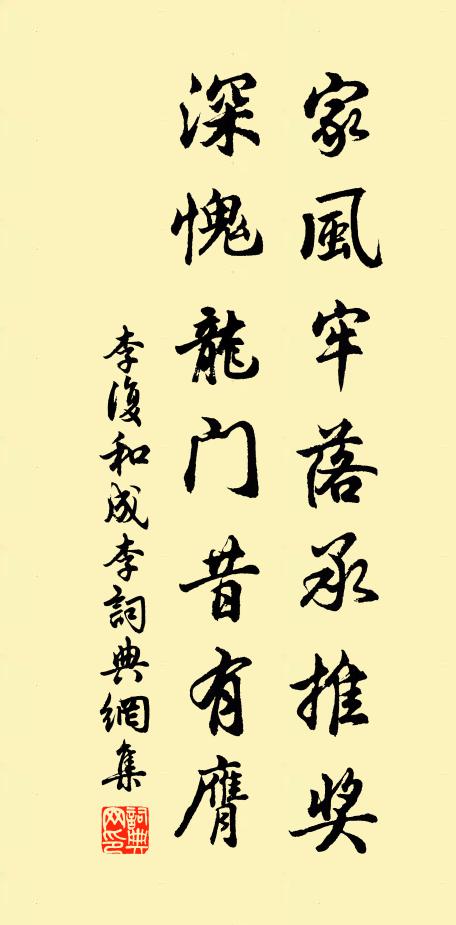 家風牢落承推奖
深愧龍门昔有膺
李復和成李詞典網集
詞典网印